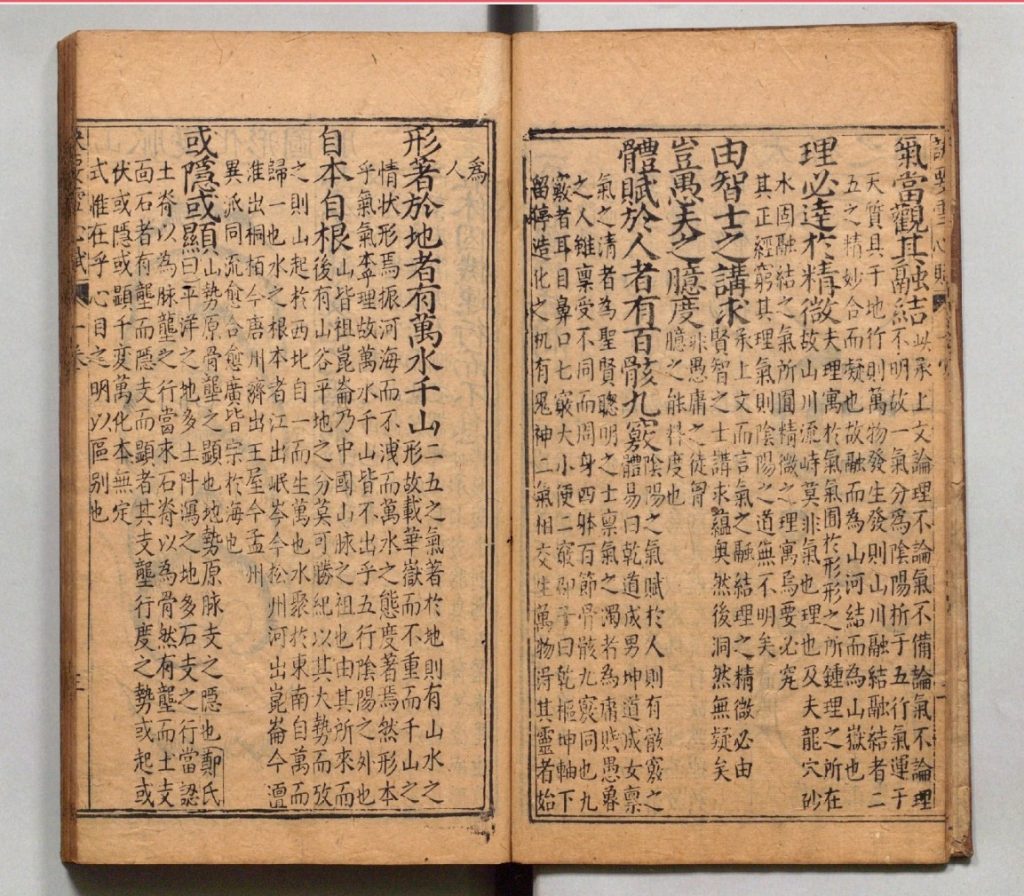 氣當觀其融結
此承上文論理不論氣不備論氣不論理
不明故一氣分爲陰陽折于五行氣運于
天質具于地行則萬物發生發則山川融結融結者二
五之精妙合而凝也故融而為山河結而為山嶽也
理必達於精微
夫理寓於氣氣囿於形形之所鍾理之所在
故山川流峙莫非氣也理也及夫龍穴砂
水固融結之氣所囿精微之理寓焉要必究
其正經窮其理氣則陰陽之道無不明矣
由智士之講求
承上文而言氣之融結理之精微必由
賢智之士講求蘊奧然後洞然無疑矣
豈愚夫之臆度
非愚庸之徒胷
臆之能料度也
體賦於人者有百骸九竅
陰陽之氣賦於人則有骸竅之
體易曰乾道成男坤道成女稟
氣之清者為聖賢聰明之士稟氣之濁者為庸賎愚魯
之人雖稟受不同而周身四躰百節骨骸九竅同也九
竅者耳目鼻口七竅大小便二竅邵子曰乾樞坤軸下
留停造化之机有鬼神二氣相交生萬物淂其靈者始
爲
人
形著於地者有萬水千山
二五之氣著於地則有山水之
形故載華嶽而不重而千山之
情狀形焉振河海而不洩而萬水之態度著焉然形本
乎氣氣本乎理故萬水千山皆不出乎五行陰陽之外也
自本自根
山皆祖崑崙乃中國山脉之祖也由其所來而
後有山谷平地之分莫可勝紀以其大勢而攷
之則山起於西北自一而生萬也水聚於東南自萬而
歸一也水之根本者江出岷岑今松州河出崑崙今澶
淮出桐栢今唐州濟出王屋今孟州
異派同流愈合愈廣皆宗於海也
或隱或顯
山勢原骨壟之顯也地勢原脉支之隱也鄭氏
曰平洋之地多土阡瀉之地多石支之行當認
土脊以為脉壟之行當來石脊以為骨然有壟而土支
面石者有壟而隱支而顯者其支壟行度之勢或起或
伏或隱或顕千变萬化本無定
式惟在乎心目之明以區别也
一卷